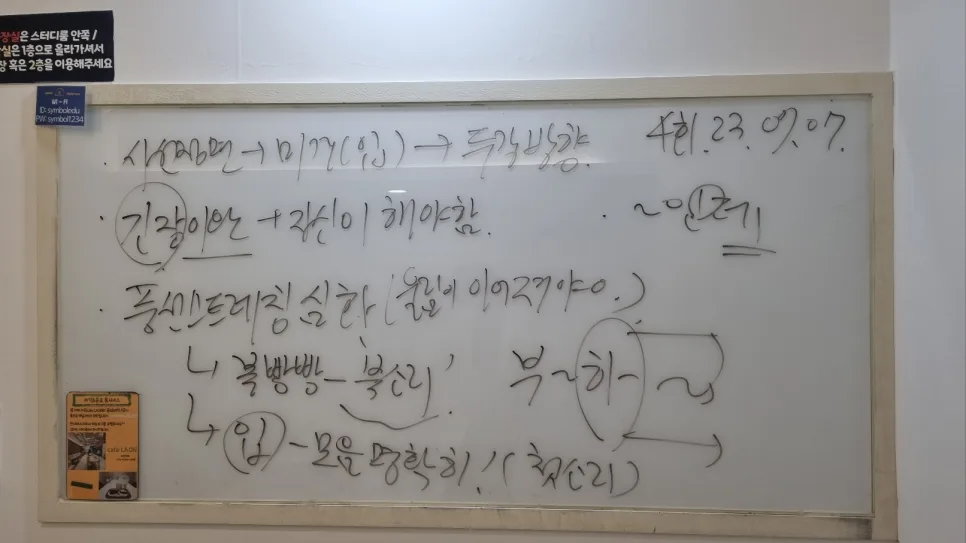 장실은 스터디룸 안쪽 /
실은 1층으로 올라가셔서
장 혹은 2층을 이용해주세요
WI-FI
ID: symboledu
PW: symbol1234
4회. 23. 09. 07.
· 시선정면 → 미간(입) → 두각방향.
· 긴장이완 → 자신이 해야함.
· ~인데
· 풍선스트레칭 심화 (울림이 이어져야 ㅇ.)
↳ 북빵빵 - 북소리!
부~히~
↳ 입 - 모음 명확히! (첫소리)
cafe